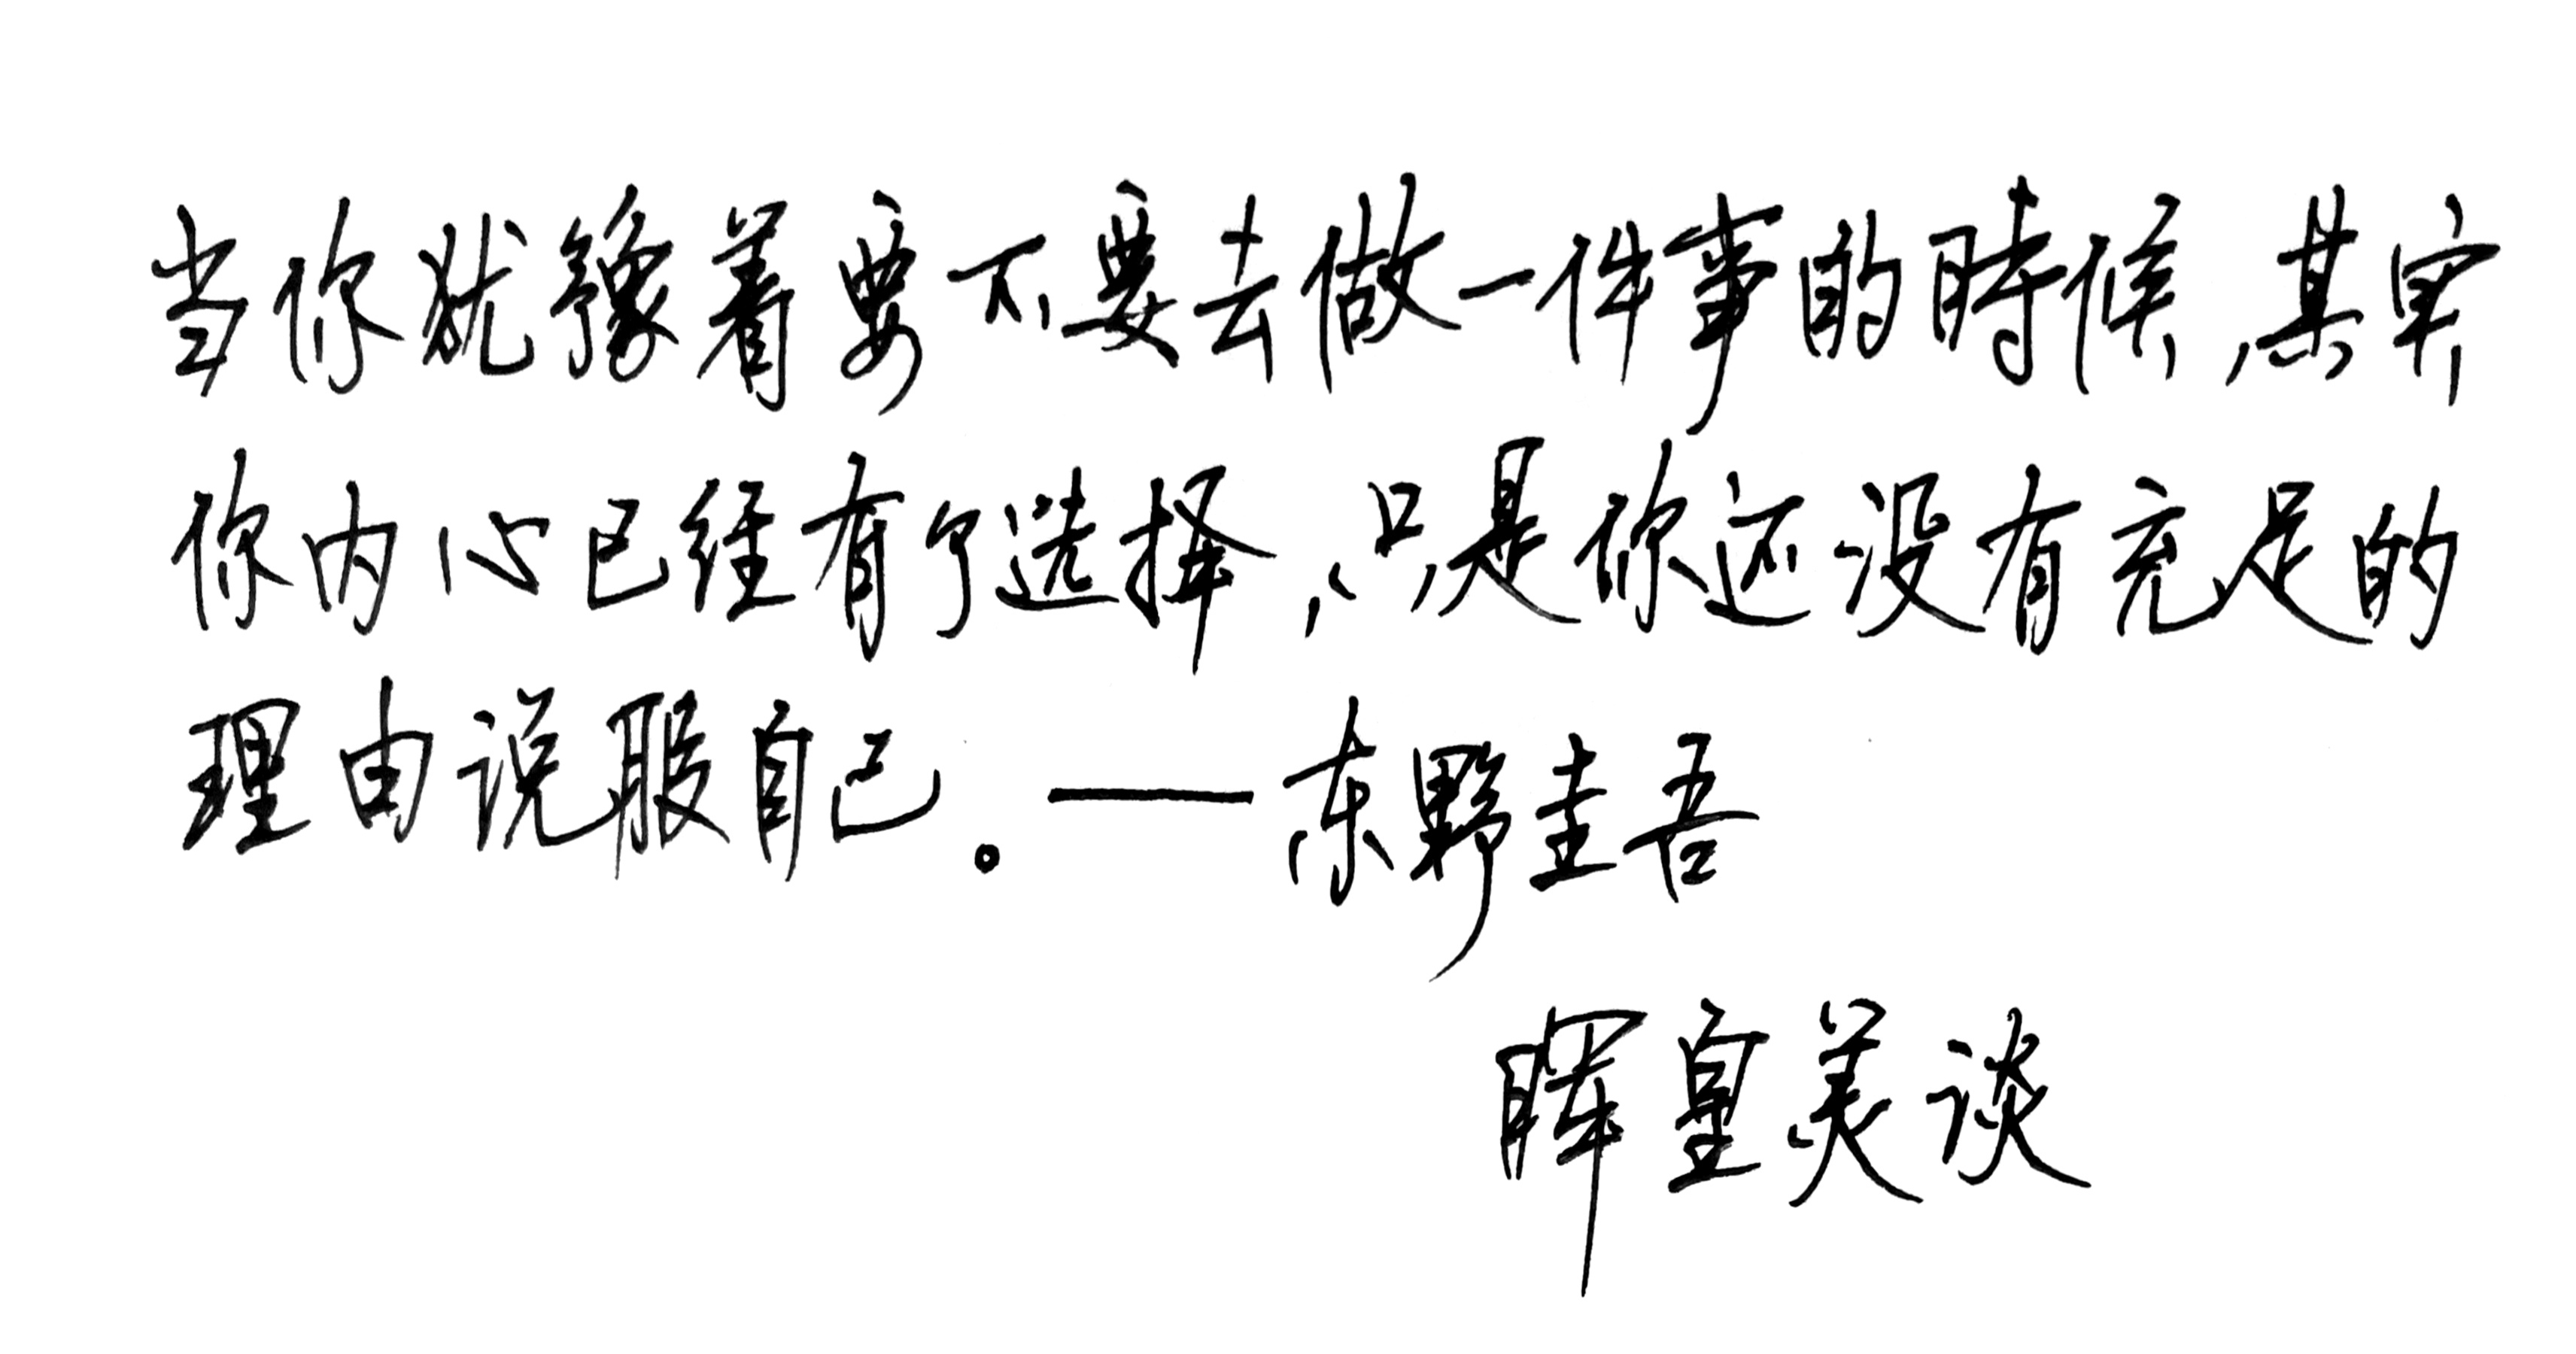 当你犹豫着要不要去做一件事的時候,其実
你内心已经有了选择,只是你还没有充足的
理由说服自己。——东野圭吾
暉皇美谈